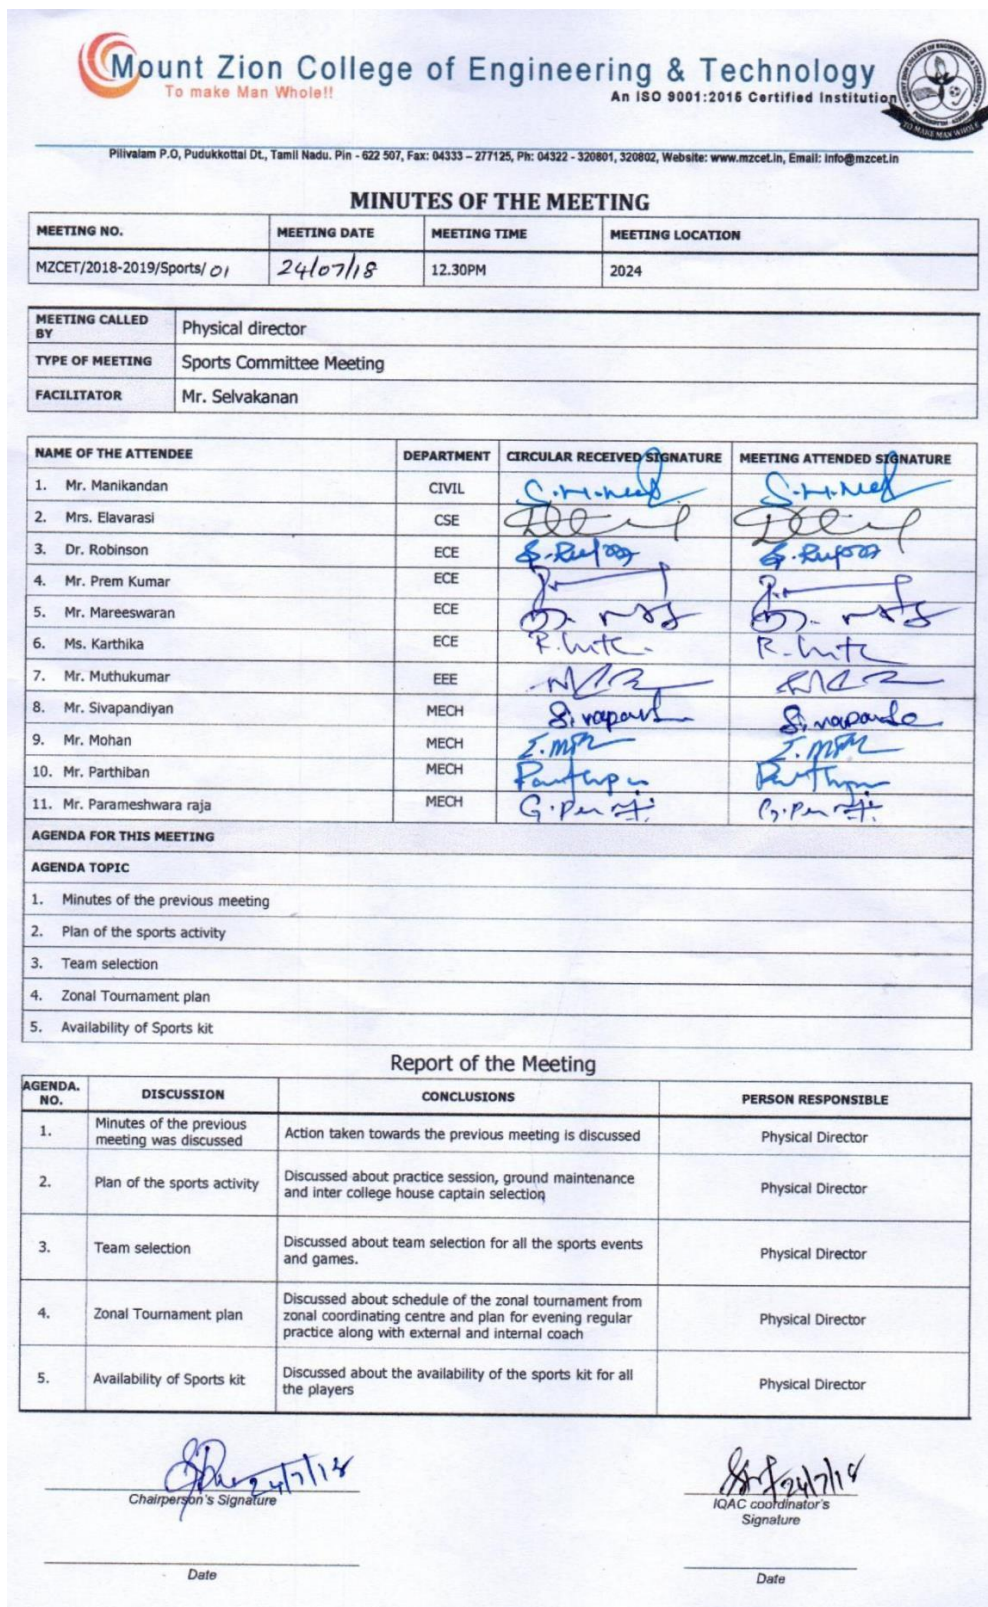 Mount Zion College of Engineering & Technology
To make Man Whole!!
An ISO 9001:2015 Certified Institution
TO MAKE MAN WHOLE
Pilivalam P.O, Pudukkottai Dt., Tamil Nadu. Pin - 622 507, Fax: 04333 – 277125, Ph: 04322 - 320801, 320802, Website: www.mzcet.in, Email: info@mzcet.in
MINUTES OF THE MEETING
MEETING NO. MEETING DATE MEETING TIME MEETING LOCATION
MZCET/2018-2019/Sports/ 01 24/07/18 12.30PM 2024
MEETING CALLED
BY Physical director
TYPE OF MEETING Sports Committee Meeting
FACILITATOR Mr. Selvakanan
NAME OF THE ATTENDEE DEPARTMENT CIRCULAR RECEIVED SIGNATURE MEETING ATTENDED SIGNATURE
1. Mr. Manikandan CIVIL
2. Mrs. Elavarasi CSE
3. Dr. Robinson ECE
4. Mr. Prem Kumar ECE
5. Mr. Mareeswaran ECE
6. Ms. Karthika ECE
7. Mr. Muthukumar EEE
8. Mr. Sivapandiyan MECH
9. Mr. Mohan MECH
10. Mr. Parthiban MECH
11. Mr. Parameshwara raja MECH
AGENDA FOR THIS MEETING
AGENDA TOPIC
1. Minutes of the previous meeting
2. Plan of the sports activity
3. Team selection
4. Zonal Tournament plan
5. Availability of Sports kit
Report of the Meeting
AGENDA.
NO. DISCUSSION CONCLUSIONS PERSON RESPONSIBLE
1. Minutes of the previous
meeting was discussed Action taken towards the previous meeting is discussed Physical Director
2. Plan of the sports activity Discussed about practice session, ground maintenance
and inter college house captain selection Physical Director
3. Team selection Discussed about team selection for all the sports events
and games. Physical Director
4. Zonal Tournament plan Discussed about schedule of the zonal tournament from
zonal coordinating centre and plan for evening regular
practice along with external and internal coach Physical Director
5. Availability of Sports kit Discussed about the availability of the sports kit for all
the players Physical Director
24/7/18 24/7/18
Chairperson's Signature IQAC coordinator's
Signature
Date Date